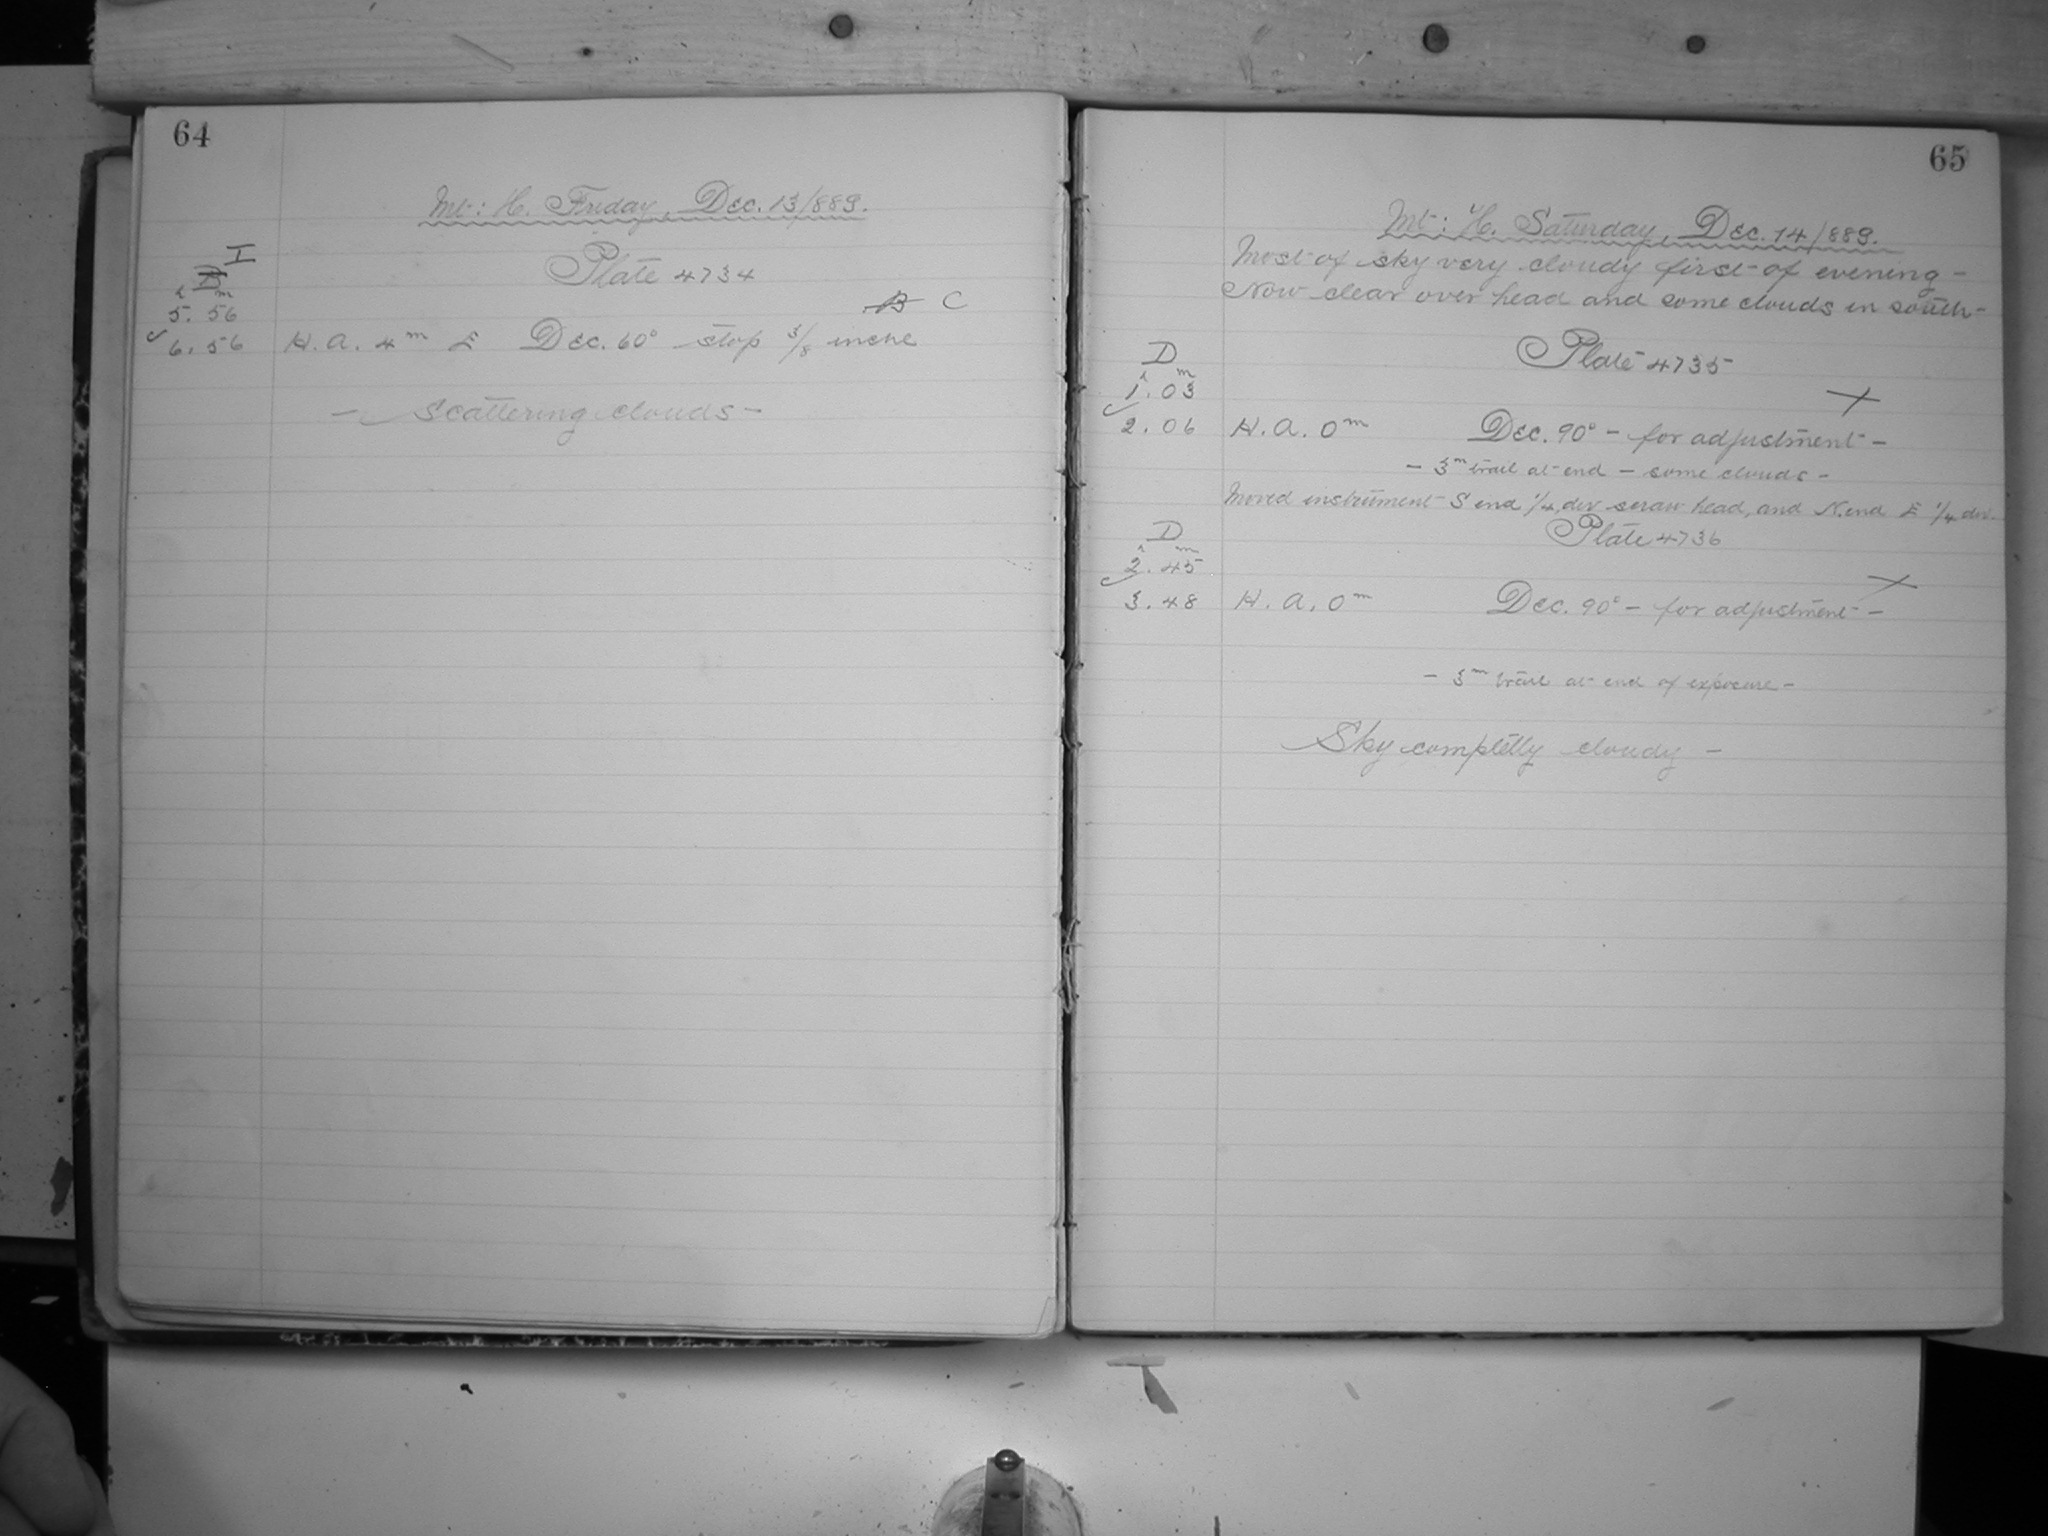 64
Mt: H. Friday, Dec. 13/889.
I
D
Plate 4734
h m
5. 56
B C
6. 56 H. A. 4m E Dec. 60° stop 3/8 inche
- scattering clouds -
65
Mt: H. Saturday, Dec. 14/889.
Most of sky very cloudy first of evening -
Now clear over head and some clouds in south -
D
Plate 4735
h m
1. 03
X
2. 06 H. A. 0m Dec. 90° - for adjustment -
- 3m trail at end - some clouds -
Moved instrument S end 1/4 div scraw head, and N. end E 1/4 div.
D
Plate 4736
h m
2. 45
X
3. 48 H. A. 0m Dec. 90° - for adjustment -
- 3m trail at end of exposure -
Sky completly cloudy -